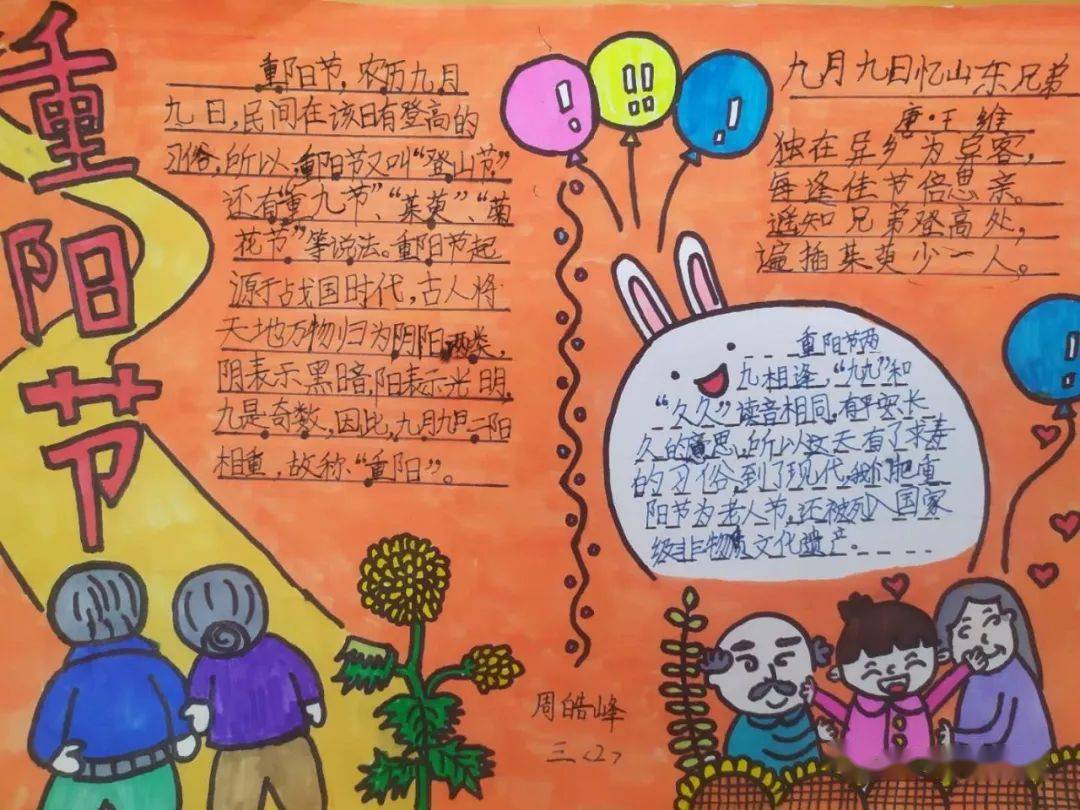 重阳节
重阳节，农历九月
九日，民间在该日有登高的
习俗，所以，重阳节又叫“登山节”
还有“重九节”、“茱萸”、“菊
花节”等说法。重阳节起
源于战国时代，古人将
天地万物归为阴阳两类，
阴表示黑暗，阳表示光明，
九是奇数，因此，九月九日二阳
相重，故称“重阳”。
九月九日忆山东兄弟
唐·王维
独在异乡为异客，
每逢佳节倍思亲。
遥知兄弟登高处，
遍插茱萸少一人。
重阳节两
九相逢，“九九”和
“久久”读音相同，有平安长
久的意思，所以这天有了求寿
的习俗，到了现代，我们把重
阳节为老人节，还被列入国家
级非物质文化遗产。
周皓峰
三〈2〉